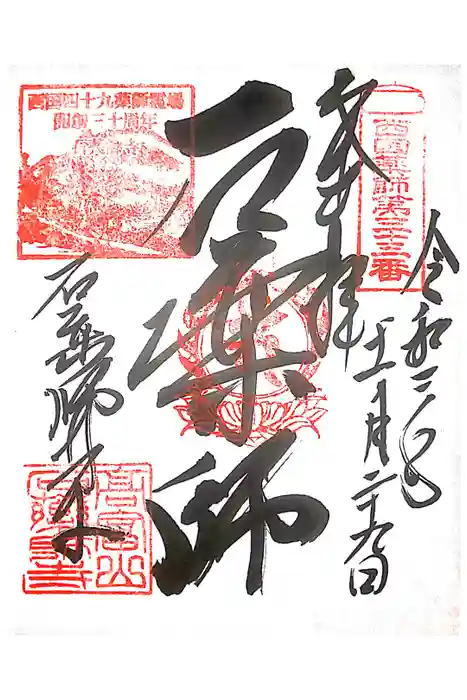 西国薬師第三十三番
奉拝
令和二年
十一月二十九日
石薬師
西国四十九薬師霊場
開創三十周年
石薬師寺
高富山
石薬師寺